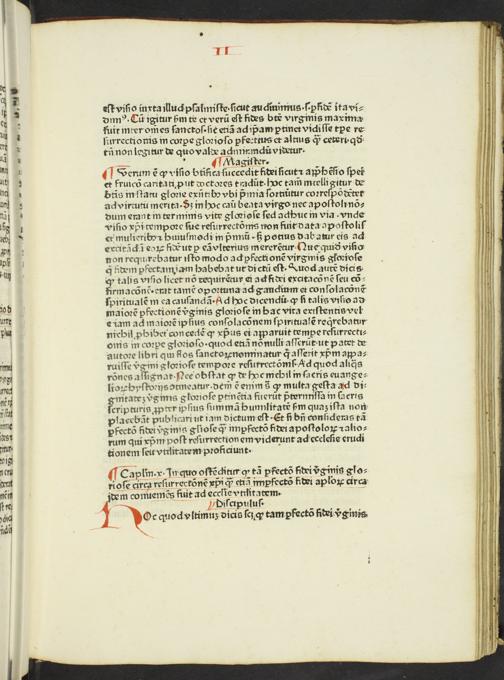 II
est visio iuxta illud psalmiste. sicut audiuimus. s. p fidē ita vi-
dimꝰ. Cū igitur ẜm te et verū est fides btē virginis maxima
fuit inter omēs sanctos. sic etiā ad ip̄am ptinet vidisse tp̄e re-
surrectionis in corpe glorioso pfectius et altius q̄ ceteri. qd̄
tn̄ non legitur de quo valde admirandū videtur.
¶ Magister.
¶ Verum ē ꝙ visio btifica succedit fidei sicut appͥhēsio spei
et fruicō caritati, put doctores tradūt. hoc tam̄ intelligitur de
btis in statu glorie exn̄tibꝰ vbi p̄mia sortiūtur correspōdētia
ad virtutū merita. Sꝫ in hoc cāu beata virgo nec apostoli nō-
dum erant in terminis vite gloriose sed adhuc in via. vnde
visio xp̄i tempore sue resurrectiōis non fuit data apostolis
et mulieribꝰ huiusmodi in p̄miū. sꝫ potius dabatur eis ad
excitādā eoꝝ fidē ut p eā vlterius mererētur. Nec quod visio
non requirebatur isto modo ad pfectionē virginis gloriose
q̄ fidem pfectam iam habebat ut dictū est. Quod autē dicis.
ꝙ talis visio licet nō requirētur ei ad fidei excitacōnē seu cō-
firmacōnē. erat tamē oportuna ad gaudium et consolacōnē
spiritualē in ea causandā. Ad hoc dicendū. ꝙ si talis visio ad
maiorē pfectionē v̓ginis gloriose in hac vita existentis vel
etiam ad maiorē ipsius consolacōnem spiritualē reqͥrebatur
nichil, phibet concedē ꝙ xp̄us ei apparuit tempe resurrecti-
onis in corpe glorioso. quod etiā nōnulli asserūt. ut patet de
autore libri qui flos sanctoꝝ nominatur q̄ asserit xp̄m appa-
ruisse v̓gini gloriose tempore resurrectiōis. Ad quod aliqͣs
rōnes assignat. Nec obstat ꝙ de hoc nichil in sacris euange-
lioꝝ hystorijs ötineatur. dcm̄ ē enim sꝫ ꝙ multa gesta ad di-
gnitatē v̓ginis gloriose ptinētia fuerūt p̄termissa in sacris
scripturis, ppter ipsius summā humilitatē ẜm quā ista non
placebāt publicari ut iam dictum est. Et si bn̄ consideras tā
pfectō fidei v̓ginis gliose q̄ impfectō fidei apostoloꝝ ⁊ alio-
rum qui xp̄m post resurrectionem viderunt ad ecclesie erudi
tionem seu vtilitatem proficiunt.
¶ Caplm̄. x. In quo oste̅ditur ꝙ tā pfectō fidei v̓ginis glo-
riose circa resurrectōnē xp̄i q̄ etiā impfectō fidei aploꝝ circa
idem conueniēs fuit ad ecclesie vtilitatem.
¶ Discipulus.
Hoc quod vltimū dicis scꝫ. ꝙ tam pfectō fidei v̓ginis